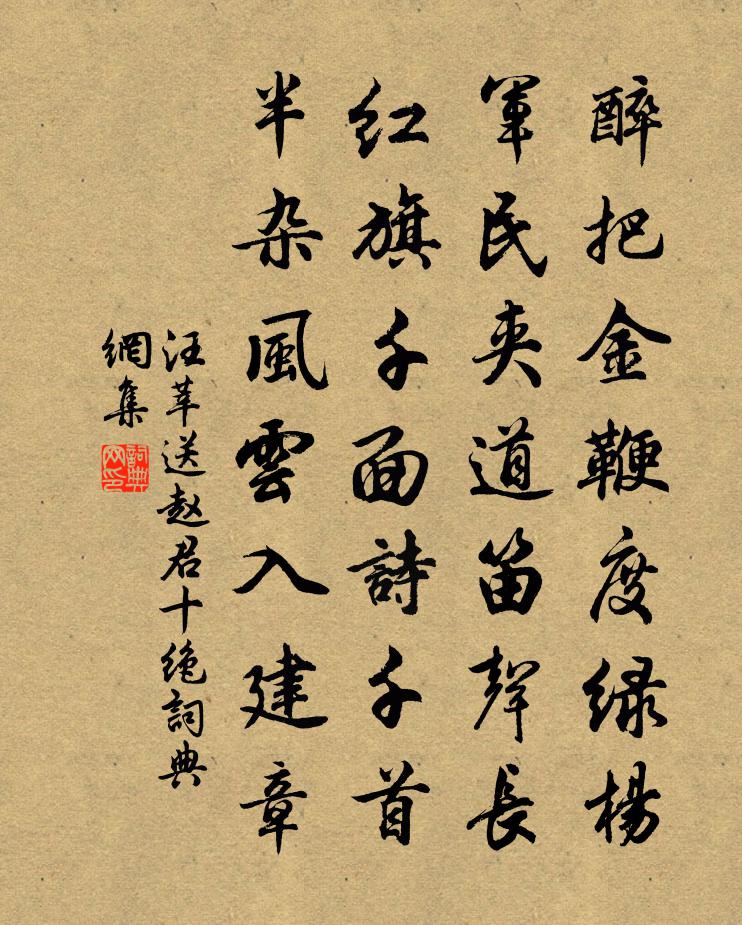 醉把金鞭度绿楊
軍民夾道笛聲長
红旗千面詩千首
半杂風雲入建章
汪莘送赵君十绝詞典
網集
詞典
网印